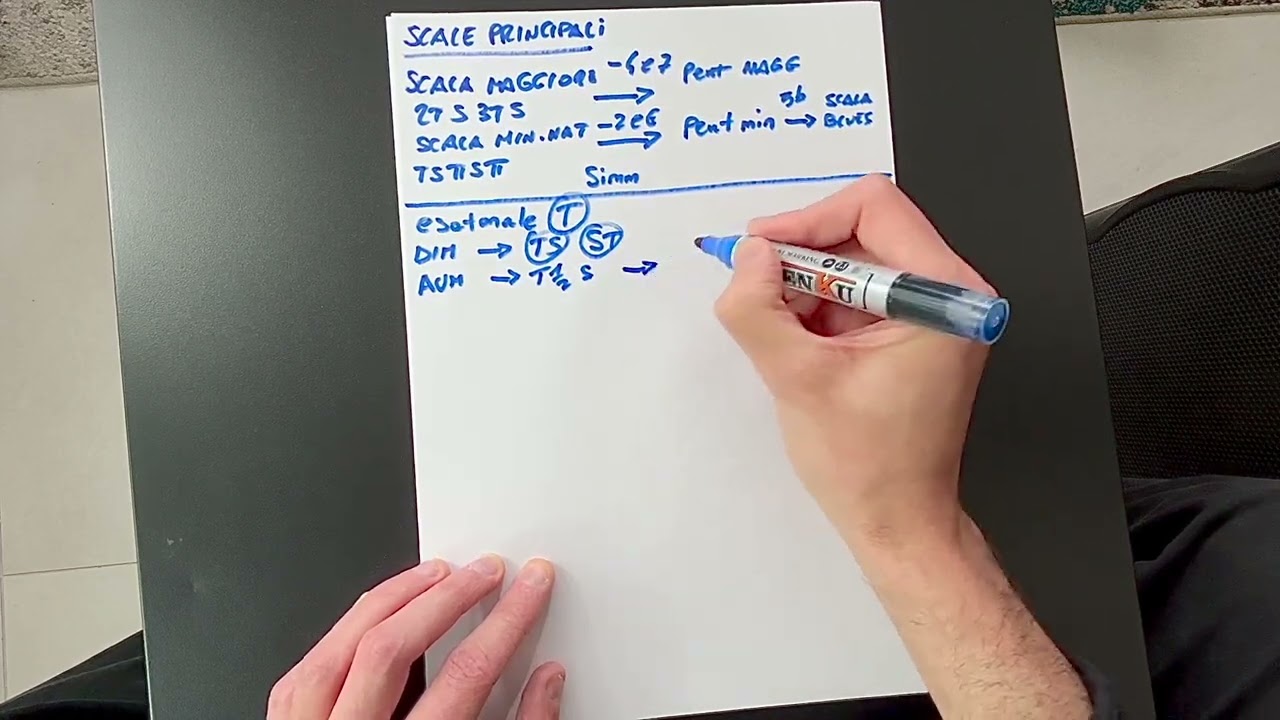 SCALE PRINCIPALI
SCALA MAGGIORE -4e7 → Pent MAGG
2T S 3T S
SCALA MIN.NAT -2e6 → Pent min 5b → SCALA BLUES
TSTTSTT
Simm
esatonale T
DIM → TS ST
AUM → T1/2 S →
ENKU